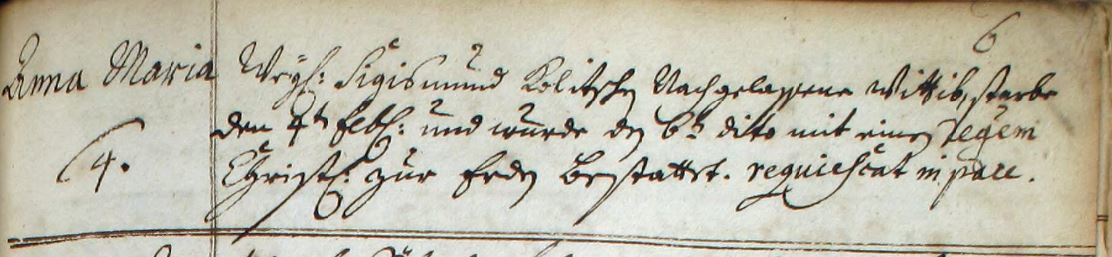 6
Anna Maria Weyl: Sigismund Kolitschen Nachgelassene Wittib, starbe
den 4t: Febl: und wurde den 6t dito mit einen
4.
Christl: zur Erden bestattet. requiescat in pace.